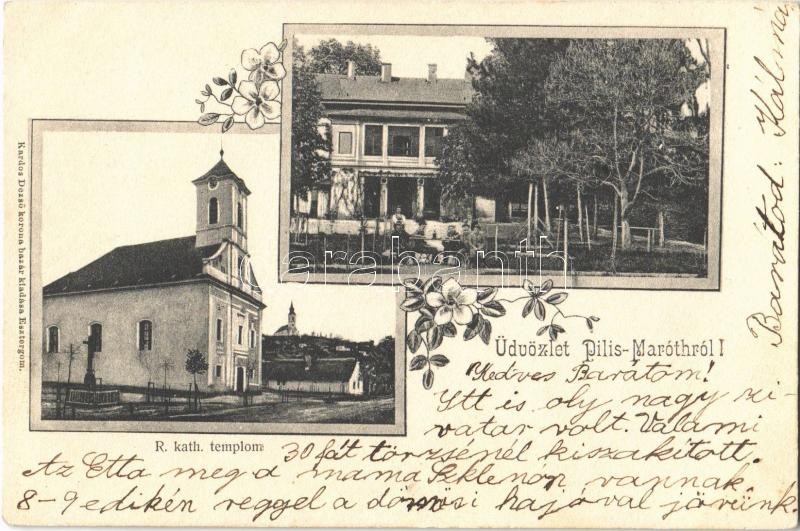 Kardos Dezső korona bazár kiadása Esztergom.
darabanth
R. kath. templom
Üdvözlet Pilis-Maróthról!
Kedves Barátom!
Itt is oly nagy zi-
vatar volt. Valami
30 fát törzsénél kiszakitott.
Az Etta meg a mama Szklenón vannak.
8-9 edikén reggel a dömösi hajóval jövünk.
Barátod: Kálmán